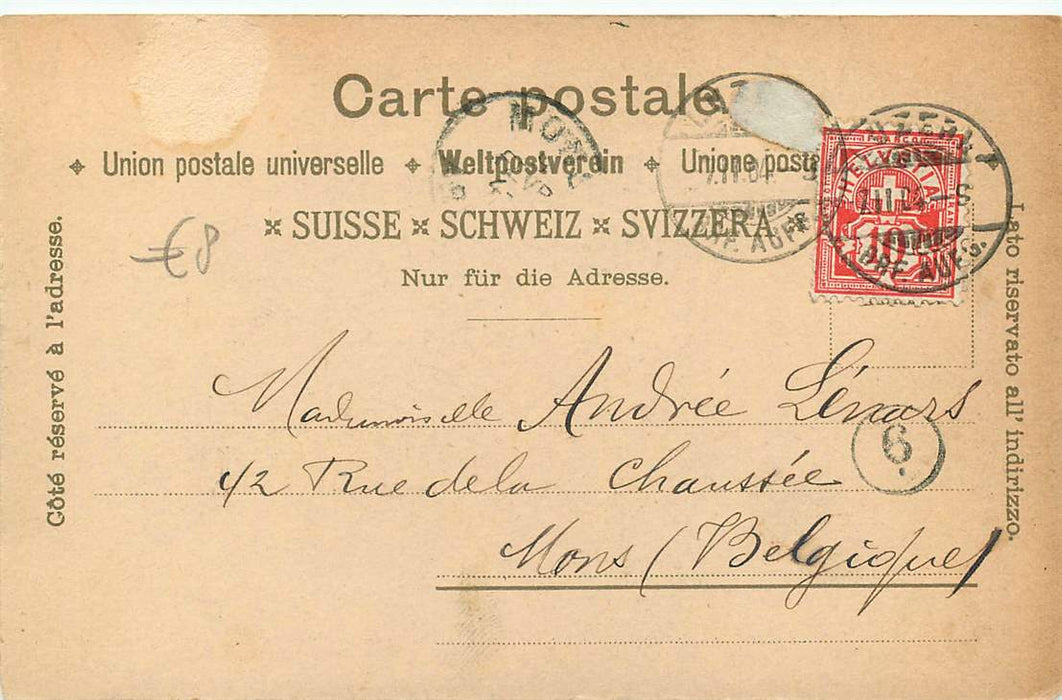 Carte postale
Union postale universelle ✻ Weltpostverein ✻ Unione posta
× SUISSE × SCHWEIZ × SVIZZERA ×
Nur für die Adresse.
Côté réservé à l'adresse.
Lato riservato all' indirizzo.
€8
MONS
BRF. AUFG.
LUZERN
BRF. AUFG.
FRANCO
HELVETIA
10
Mademoiselle Andrée Lénars
42 Rue de la Chaussée
Mons (Belgique)
6